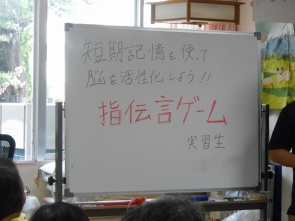 短期記憶を使って
脳を活性化しよう!!
指伝言ゲーム
実習生